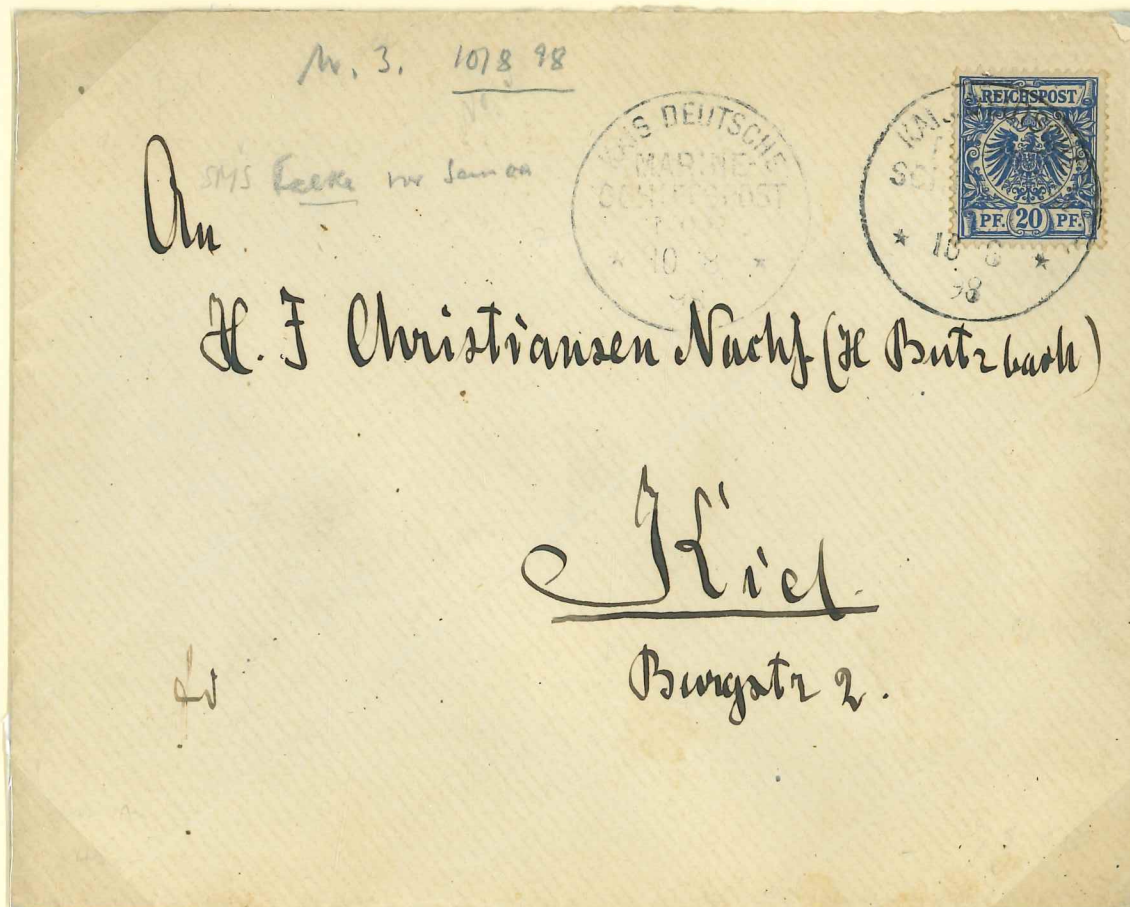 Nr. 3. 10/8 98
SMS Falke vor Samoa
KAIS DEUTSCHE
MARINE-
SCHIFFSPOST
* 10 8 *
98
REICHSPOST
PF. 20 PF.
* 10 8 *
98
An
H. J Christiansen Nachf (H Butzbach)
Kiel.
Burgstr 2.